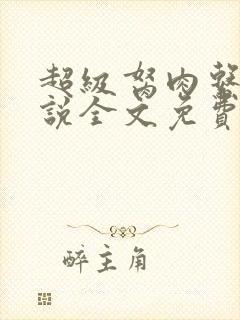 超級胬肉
說全文免費
醉主角